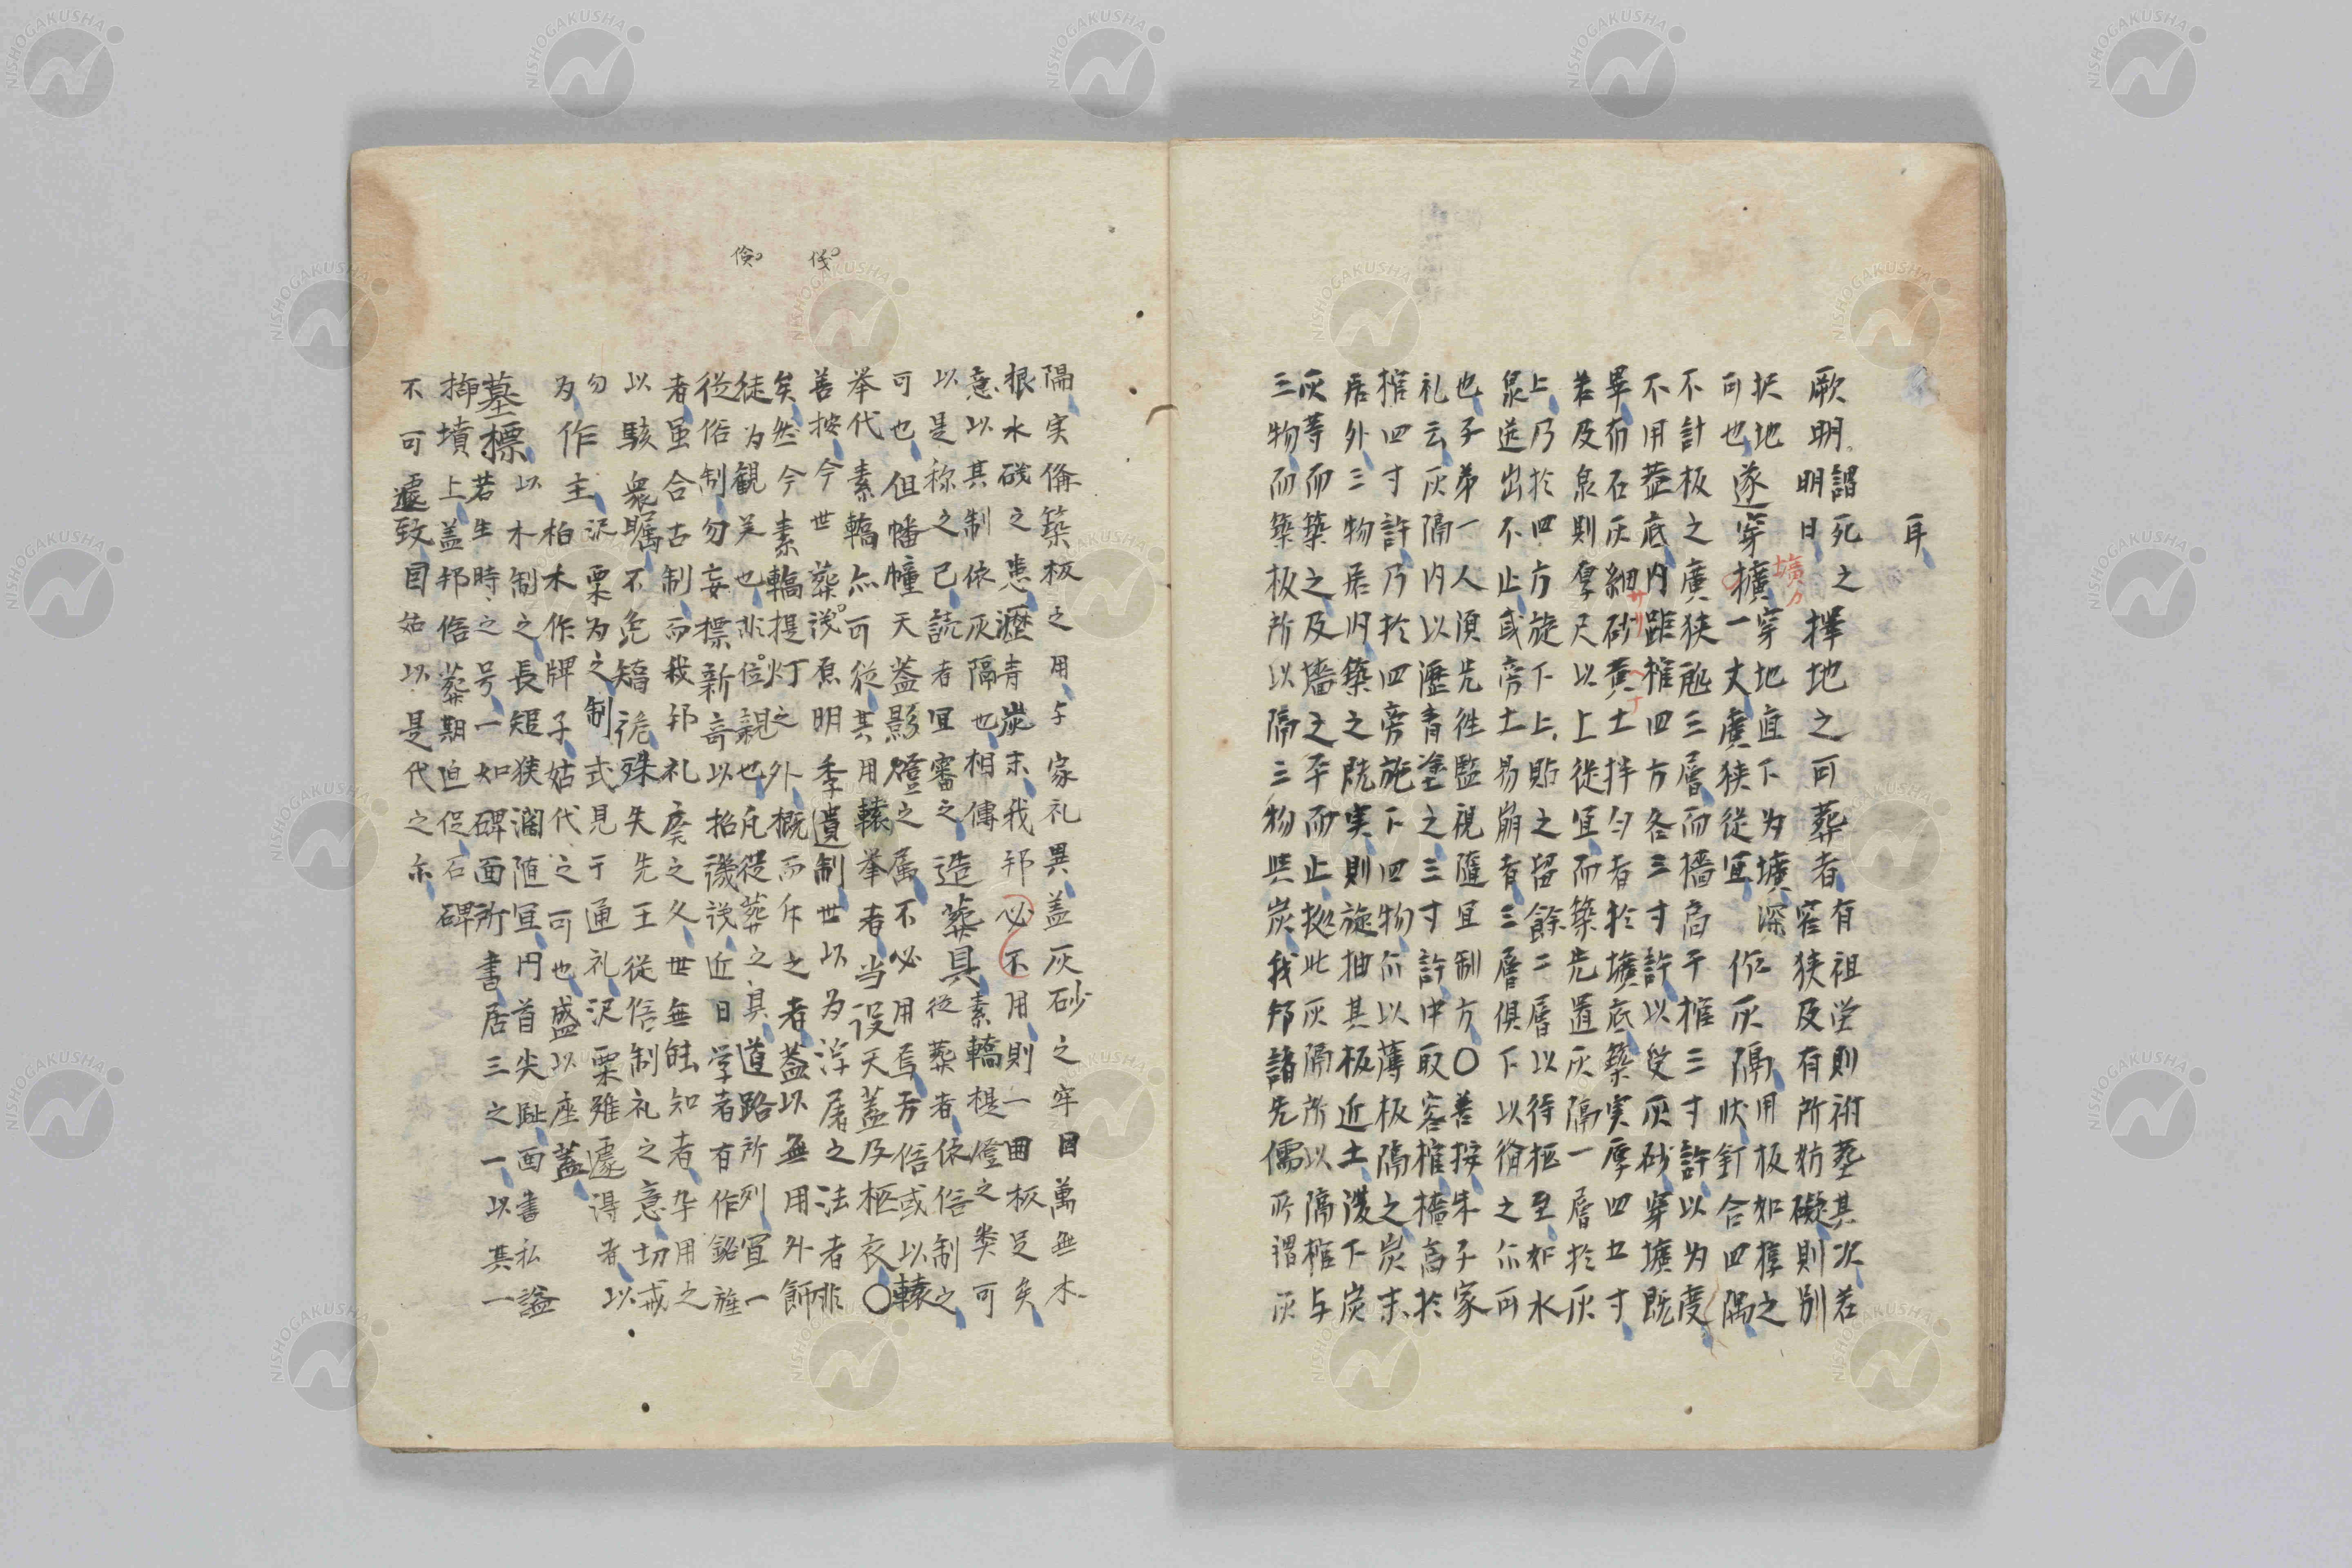 耳
厥明
謂死之
明日
擇地之可葬者
有祖塋則祔葬其次若
窄狭及有所妨礙則別
択地
可也
遂穿壙
壙カ
穿地直下为壙深
一丈廣狭從宜
作灰隔
用板如椁之
状釘合四隅
不計板之廣狭 三層而牆高于棺三寸許以为度
不用蓋底内距棺四方各三寸許以受灰砂穿壙既
畢布石灰細砂黄土拌匀者於壙底築実厚四五寸
若及泉則厚尺以上從宜而築先置灰隔一層於灰
上乃於四方旋下上貼之留餘二層以待柩至如水
泉迸出不止或旁土易崩者三層俱下以俻之亦可
也子弟一人須先徃監視隨宜制方〇善按朱子家
礼云灰隔内以瀝青塗之三寸許中取容棺牆高於
棺四寸許乃於四旁施下四物亦以薄板隔之炭末
居外三物居内築之既実則旋抽其板近土復下炭
灰等而築之及牆之平而止拠此灰隔所以隔棺与
三物而築板所以隔三物与炭我邦諸先儒所谓灰
隔実俻築板之用与家礼異盖灰砂之牢固萬無木
根水礒之患瀝青炭末我邦必不用則一囲板足矣
意以其制依灰隔也相傳
以是称之已読者宜審之
造葬具
素轎提燈之类可
從葬者依俗制之
可也但幡幢天蓋影燈之属不必用焉方俗或以轅
举代素轎亦可從其用轅举者当设天蓋及柩衣〇
善按今世葬 原明季遺制世以为浮屠之法者非
矣然今素轎提灯之外概而斥之者蓋以無用外飾
徒为観美也非 親也凡從葬之具道路所列宜一
從俗制勿妄標新奇以招譏 近日学者有作銘旌
者虽合古制而我邦礼廃之久世無能知者卒用之
以駭衆矚不免矯詭殊失先王從俗制礼之意切戒
勿
为
作主
沢栗为之制式見于通礼沢栗雖遽得者以
柏木作牌子姑代之可也盛以座蓋
墓標
以木制之長短狭濶随宜円首尖趾面書私謚
若生時之号一如碑面所書居三之一以其一
揷墳上盖邦俗葬期迫促石碑
不可遽致因姑以是代之尓
NISHOGAKUSHA